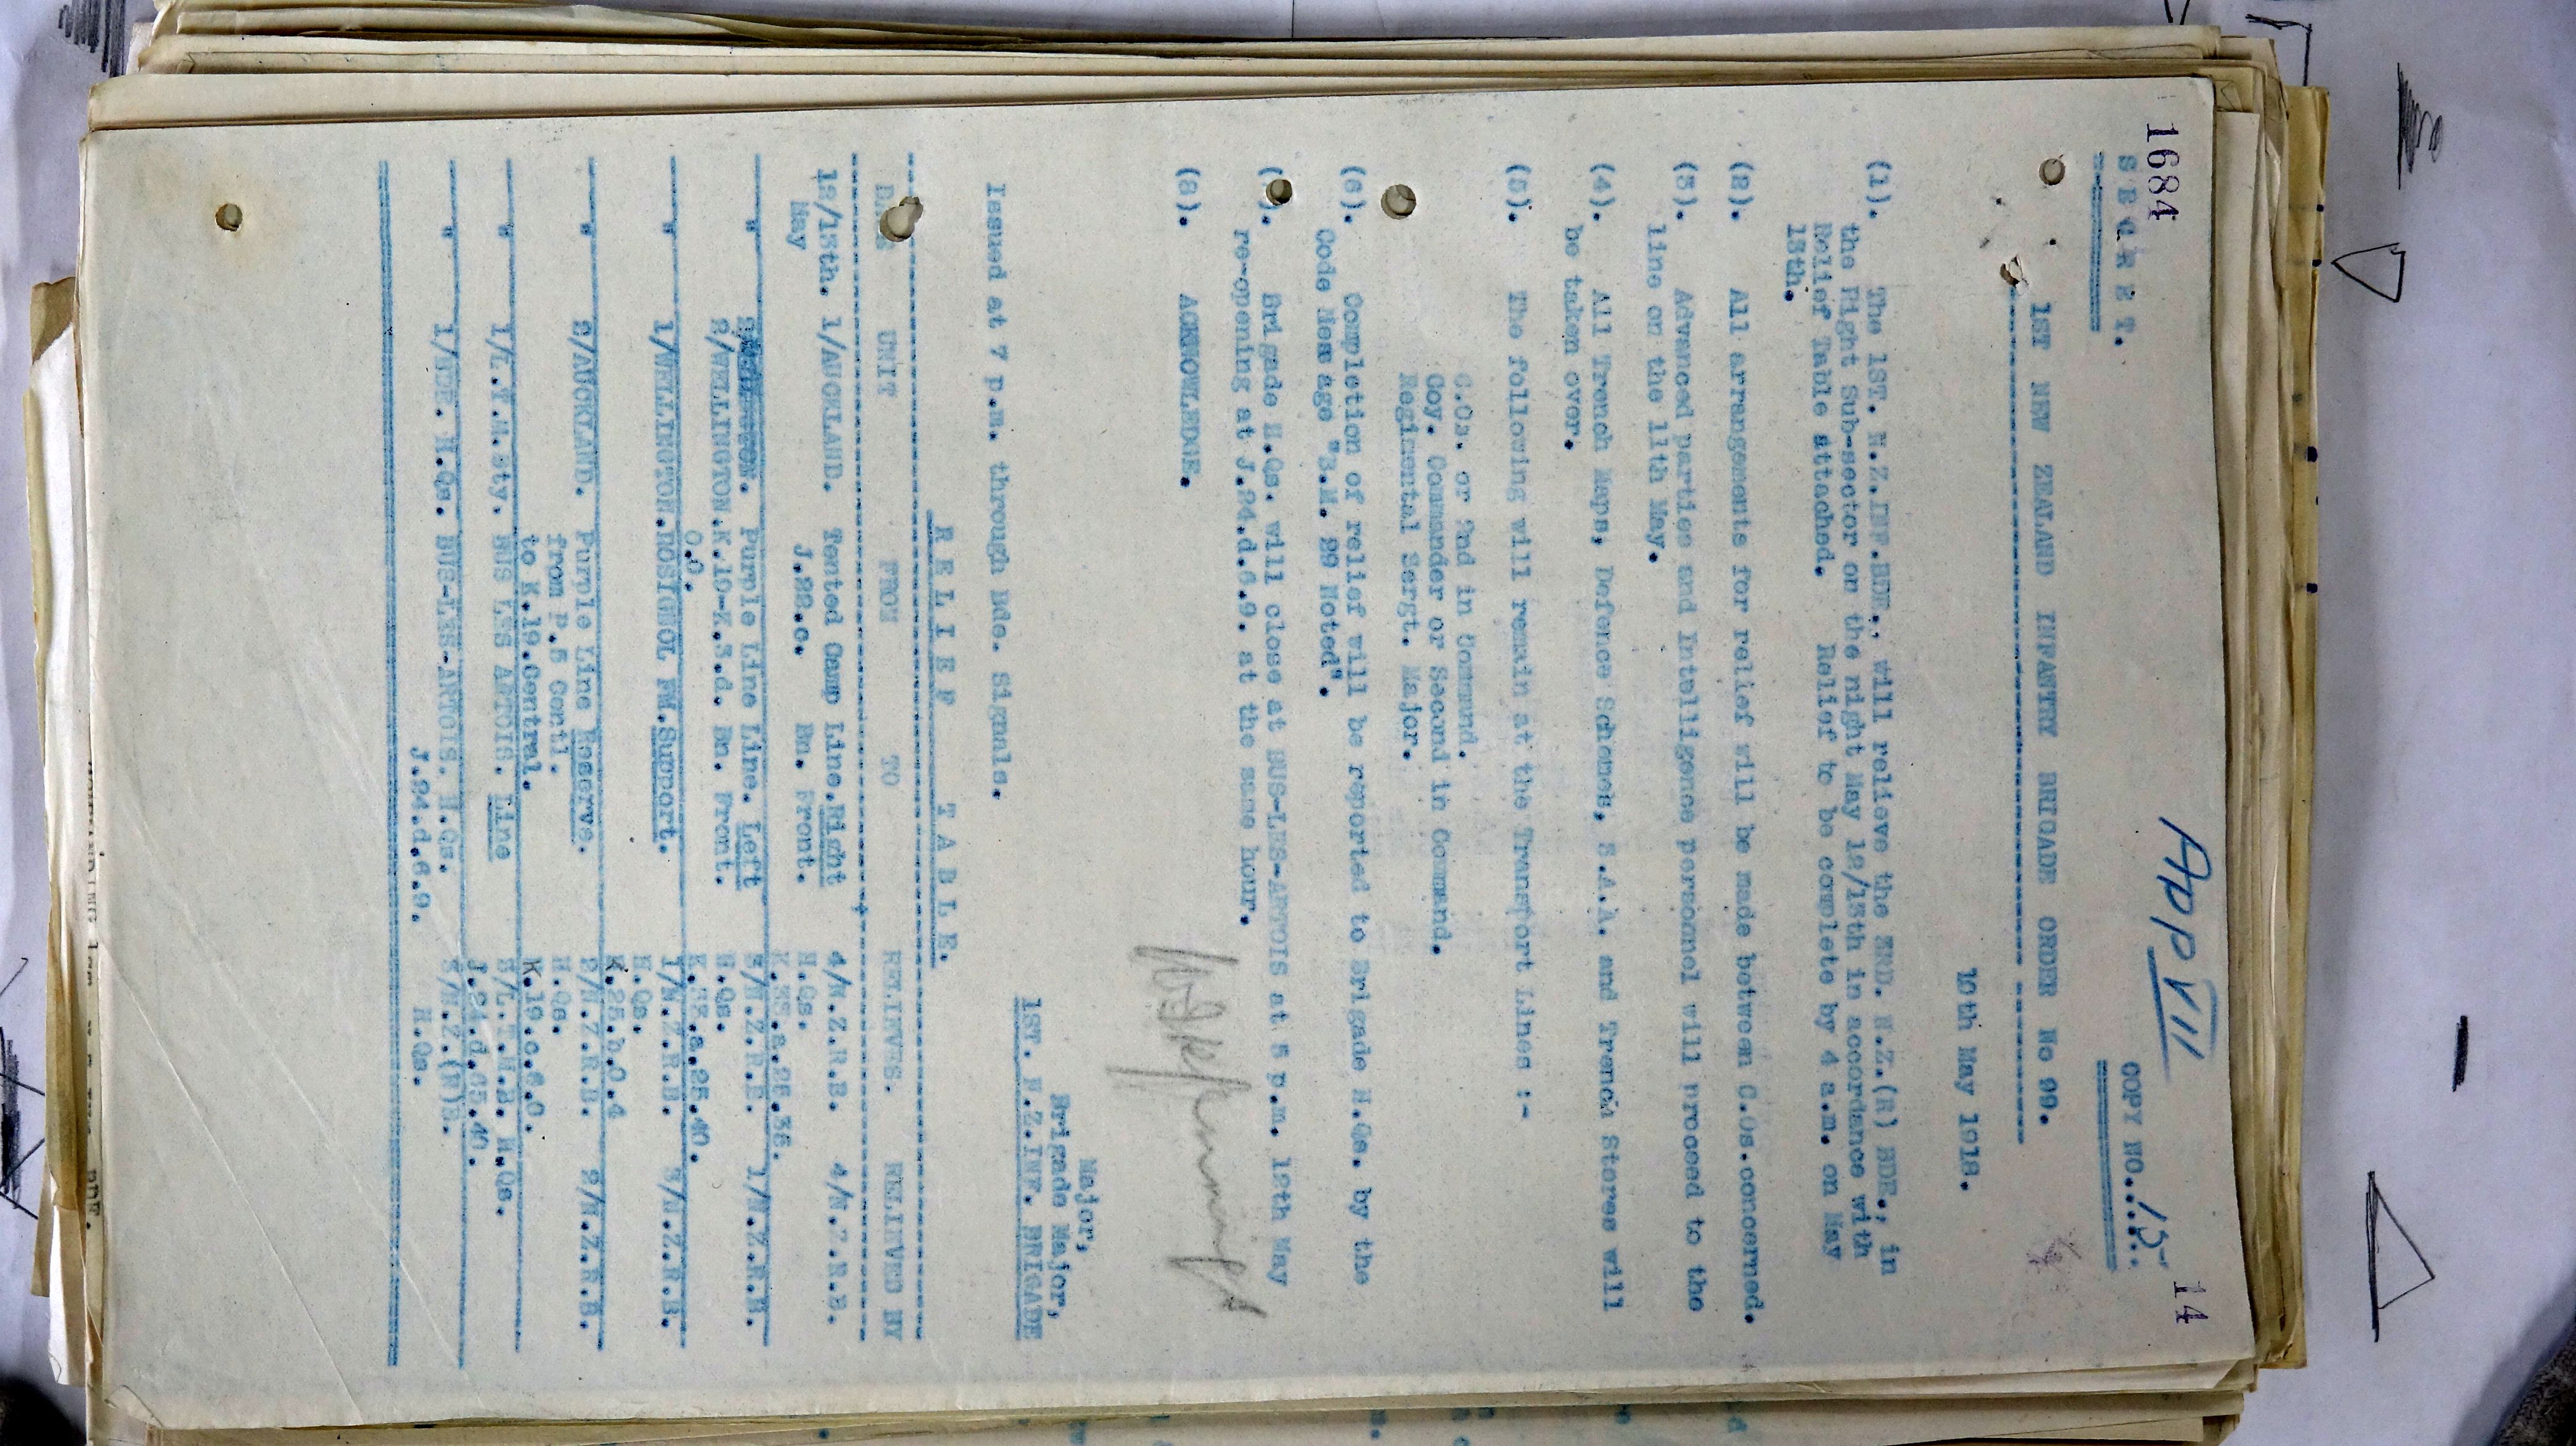 1684
14
App VII
S E C R E T.
COPY NO...15...
1ST NEW ZEALAND INFANTRY BRIGADE ORDER No 99.
10th May 1918.
(1). The 1ST. N.Z.INF.BDE., will relieve the 3RD. N.Z.(R) BDE., in
the Right Sub-sector on the night May 12/13th in accordance with
Relief Table attached. Relief to be complete by 4 a.m. on May
13th.
(2). All arrangements for relief will be made between C.Os.concerned.
(3). Advanced parties and Intelligence personnel will proceed to the
line on the 11th May.
(4). All Trench Maps, Defence Schemes, S.A.A. and Trench Stores will
be taken over.
(5). The following will remain at the Transport Lines :-
C.Os. or 2nd in Command.
Coy. Commander or Second in Command.
Regimental Sergt. Major.
(6). Completion of relief will be reported to Brigade H.Qs. by the
Code Message "B.M. 99 Noted".
). Brigade H.Qs. will close at BUS-LES-ARTOIS at 5 p.m. 12th May
re-opening at J.24.d.6.9. at the same hour.
(8). ACKNOWLEDGE.
Major,
Brigade Major,
1ST. N.Z.INF. BRIGADE
Issued at 7 p.m. through Bde. Signals.
R E L I E F T A B L E.
UNIT FROM TO RELIEVES. RELIEVED BY
12/13th. 1/AUCKLAND. Tented Camp Line.Right 4/N.Z.R.B. 4/N.Z.R.B.
May J.22.c. Bn. Front. H.Qs.
" Purple Line. Left 3/N.Z.R.B. 1/N.Z.R.B.
2/WELLINGTON.K.10-K.3.d. Bn. Front. H.Qs.
" 1/WELLINGTON.ROSIGNOL FM.Support. 1/N.Z.R.B. 3/N.Z.R.B.
H.Qs.
K.25.b.0.4
" 2/AUCKLAND. Purple Line Reserve. 2/N.Z.R.B. 2/N.Z.R.B.
from P.5 Centl. H.Qs.
to K.19.Central. K.19.c.6.0.
" 1/L.T.M.Bty. BUS LES ARTOIS. Line 3/L.T.M.B. H.Qs.
J.24.d.65.40.
" 1/BDE. H.Qs. BUS-LES-ARTOIS. H.Qs. 3/N.Z.(R)B.
J.24.d.6.9. H.Qs.